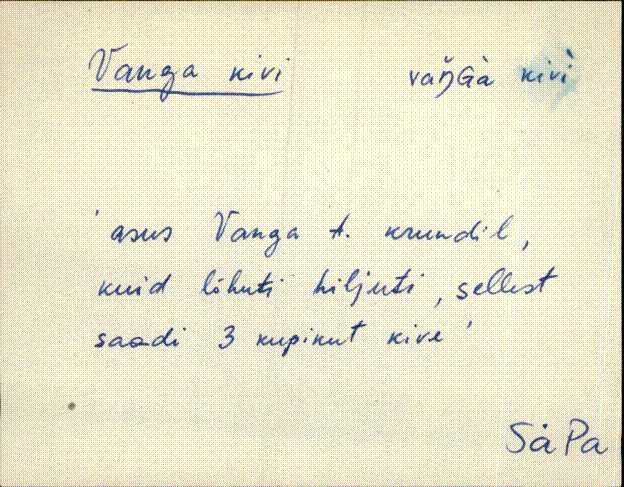 Vanga kivi vàŋGà kivì
'asus Vanga t. krundil,
kuid lõhuti hiljuti, sellest
saadi 3 kupikut kive'
SäPa